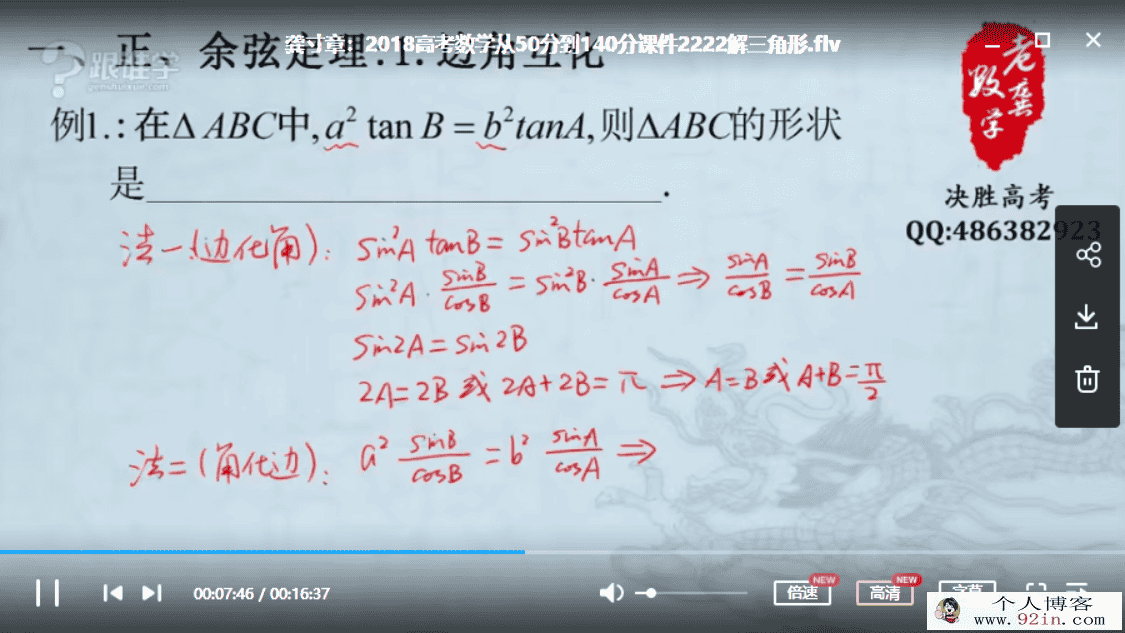 龚寸章：2018高考数学从50分到140分课件2222解三角形.flv
一、正、余弦定理:1.边角互化
跟谁学
genshuixue.com
老龚数学
例1.:在Δ ABC中,a² tan B = b²tanA,则ΔABC的形状
是____________________.
决胜高考
QQ:486382923
法一(边化角): sin²A tanB = sin²BtanA
sin²A · sinB/cosB = sin²B · sinA/cosA ⇒ sinA/cosB = sinB/cosA
sin2A = sin2B
2A=2B 或 2A+2B=π ⇒ A=B或 A+B=π/2
法二(角化边): a² sinB/cosB = b² sinA/cosA ⇒
00:07:46 / 00:16:37
倍速 NEW
高清 NEW
字幕
个人博客
www.92in.com